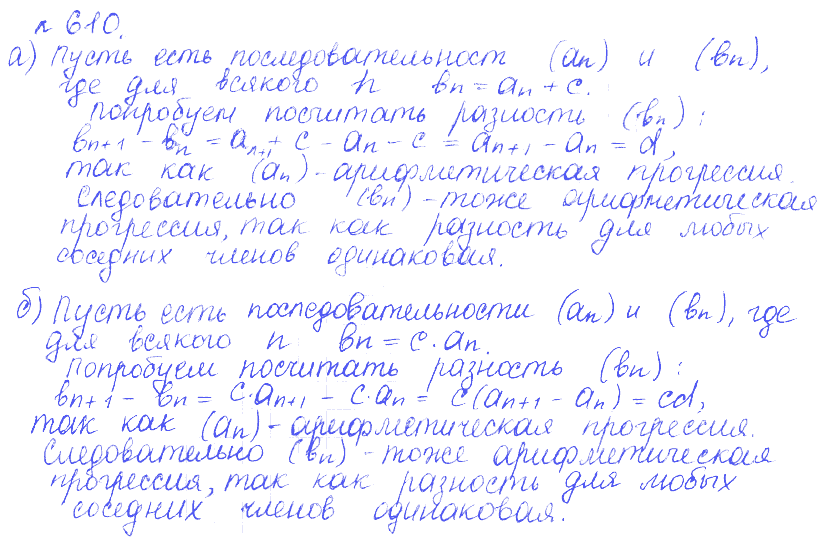 № 610.
а) Пусть есть последовательност (aₙ) и (bₙ),
где для всякого n bₙ = aₙ + c.
Попробуем посчитать разность (bₙ):
bₙ₊₁ - bₙ = aₙ₊₁ + c - aₙ - c = aₙ₊₁ - aₙ = d,
так как (aₙ) - арифметическая прогрессия.
Следовательно (bₙ) - тоже арифметическая
прогрессия, так как разность для любых
соседних членов одинаковая.
б) Пусть есть последовательности (aₙ) и (bₙ), где
для всякого n bₙ = c·aₙ.
Попробуем посчитать разность (bₙ):
bₙ₊₁ - bₙ = c·aₙ₊₁ - c·aₙ = c(aₙ₊₁ - aₙ) = cd,
так как (aₙ) - арифметическая прогрессия.
Следовательно (bₙ) - тоже арифметическая
прогрессия, так как разность для любых
соседних членов одинаковая.